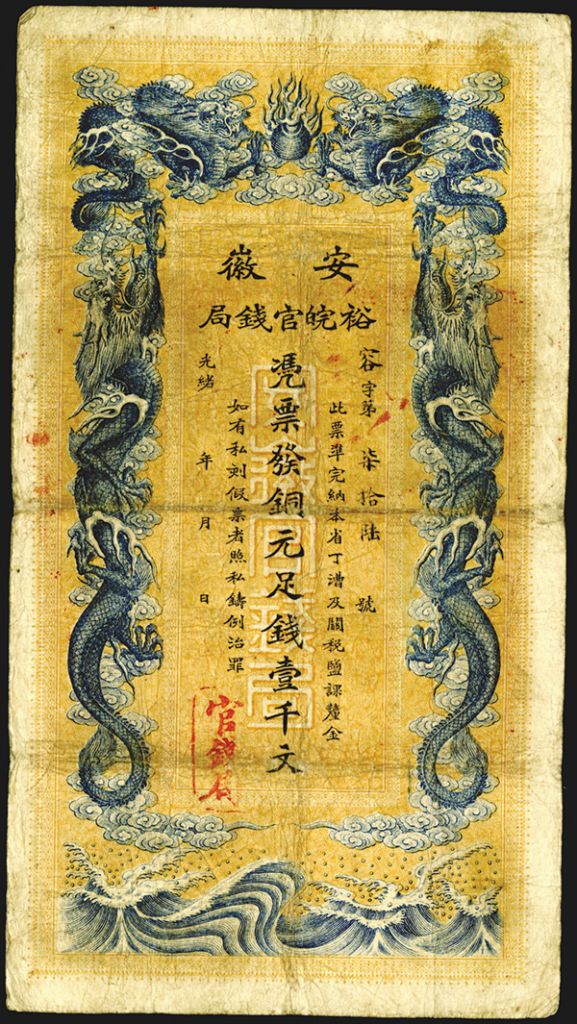 安徽
裕皖官錢局
容字第柒拾陸號
此票準完納本省丁漕及關稅鹽課釐金
凴票發銅元足錢壹千文
如有私刻假票者照私鑄例治罪
光緒 年 月 日
官錢局